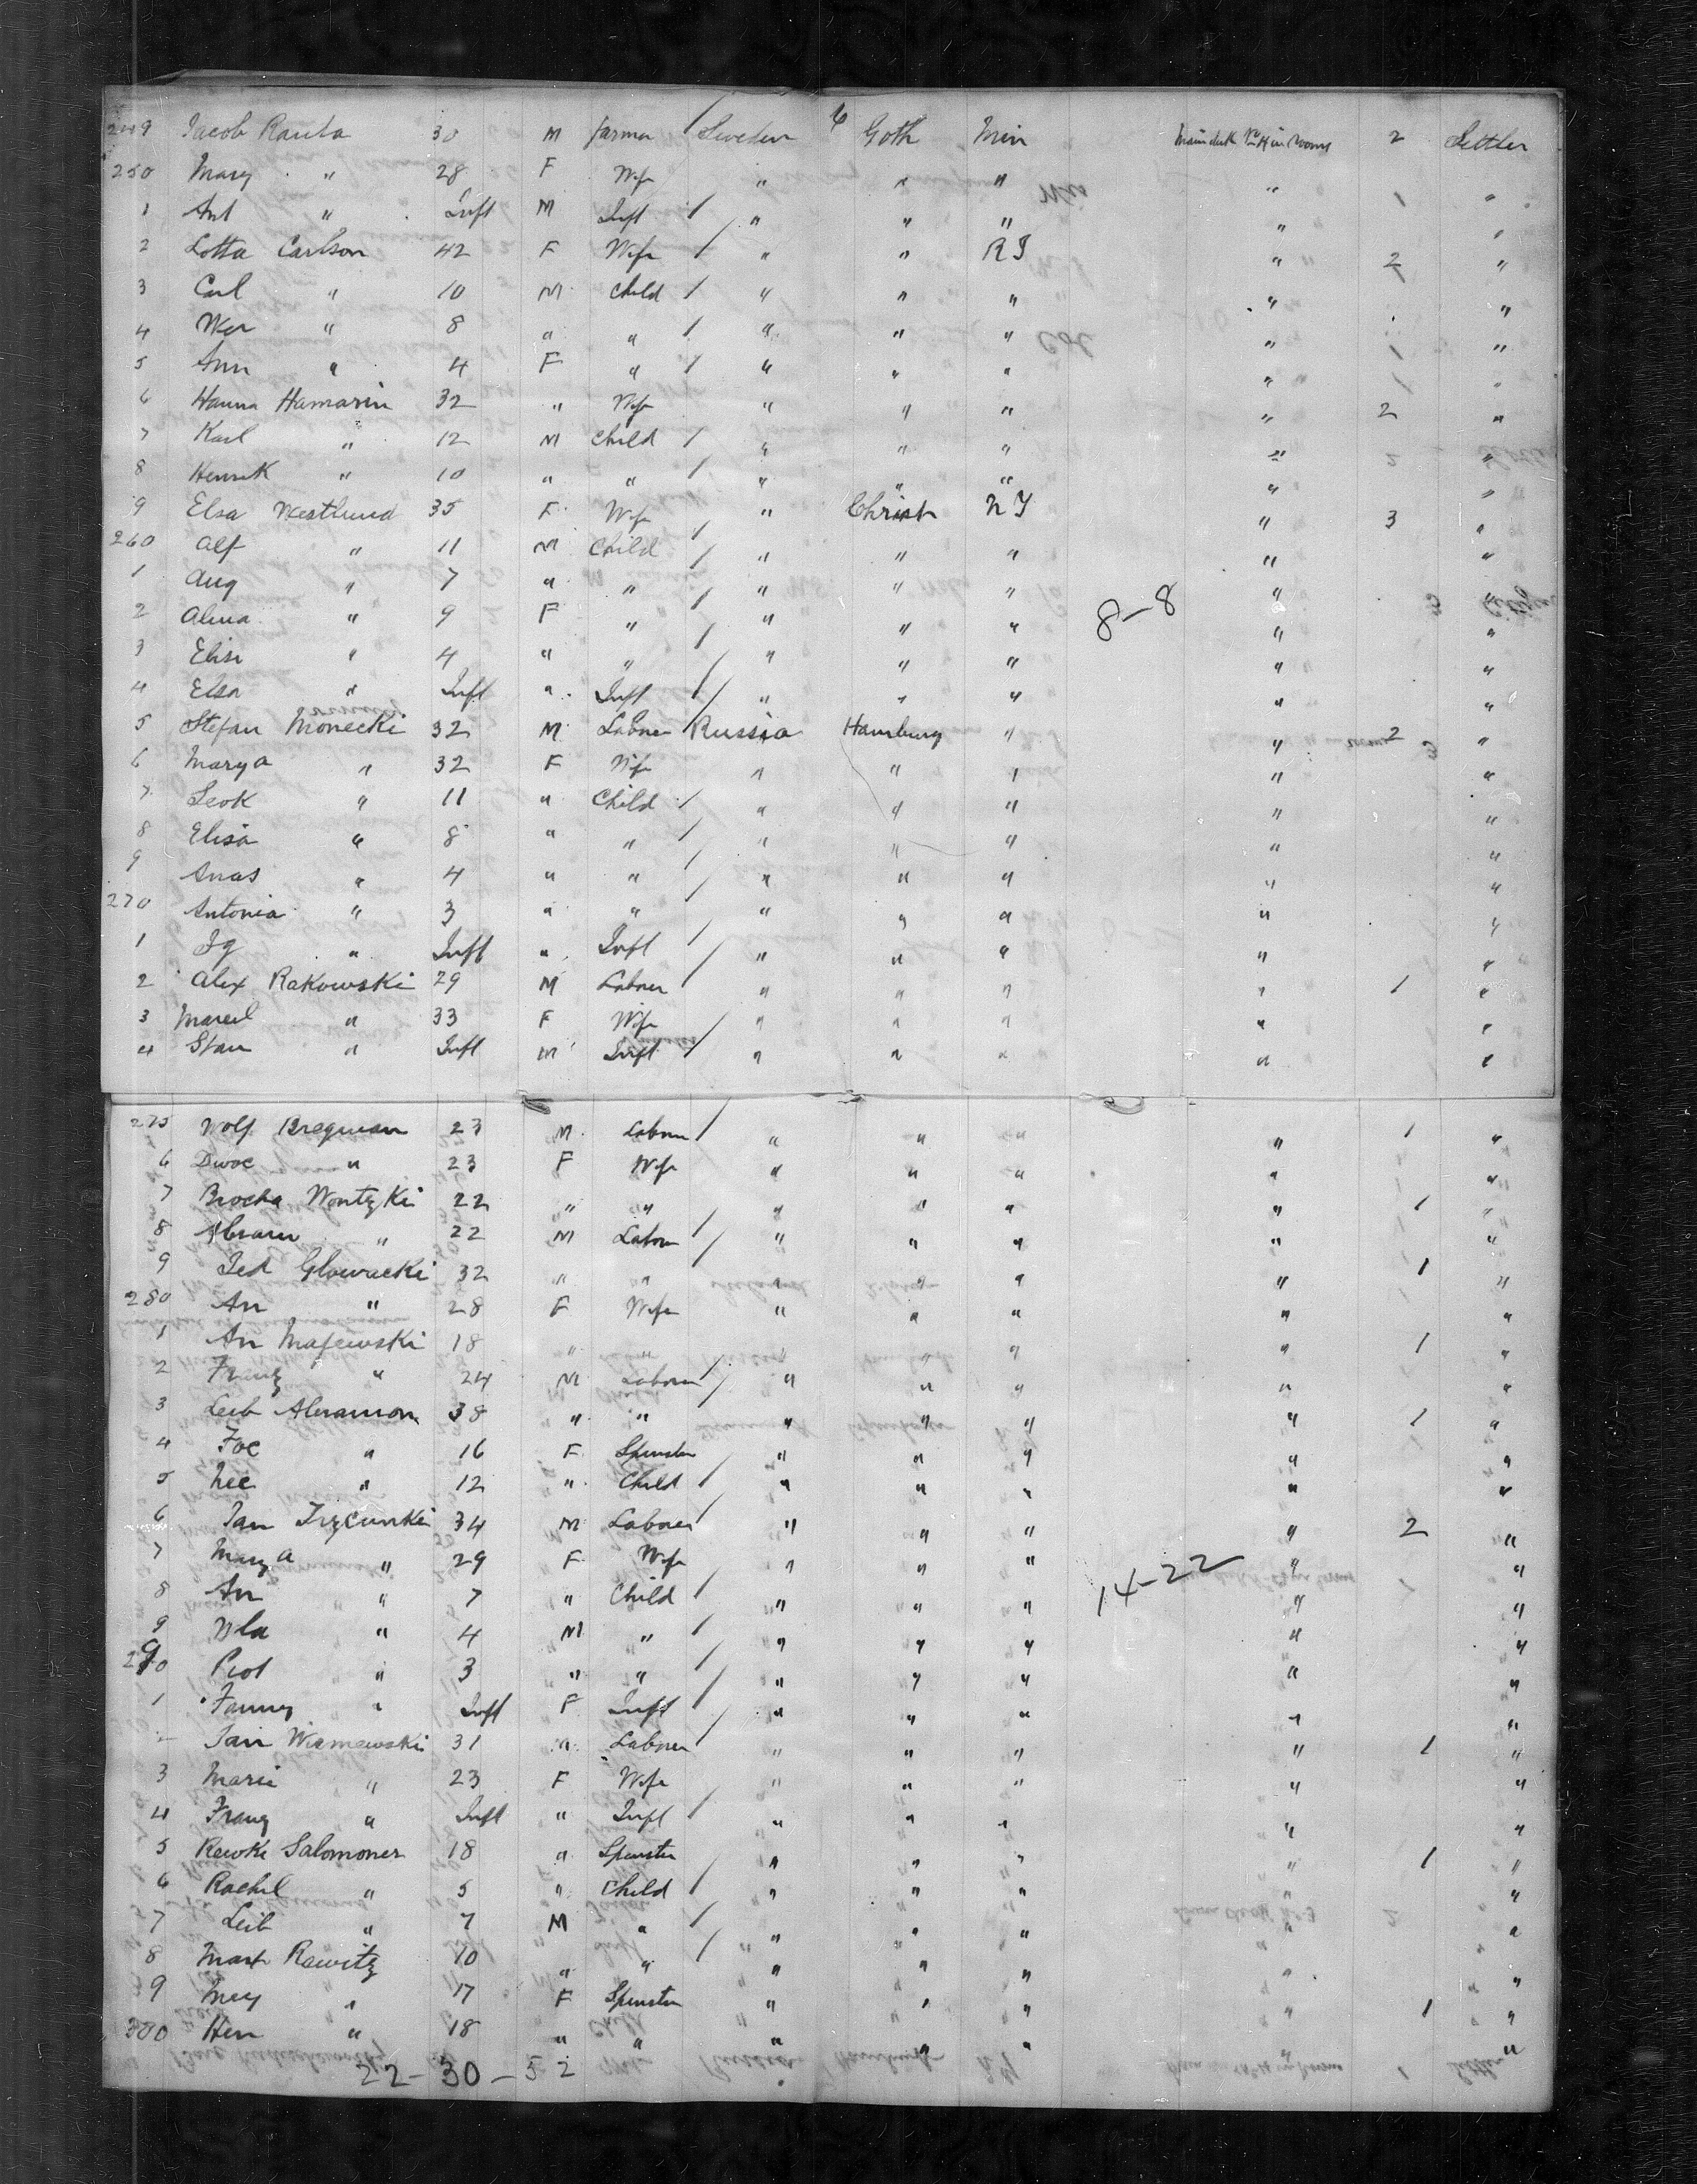 6
249 Jacob Ranta 30 M Farmer / Sweden Goth Min Main deck No 4 in Rooms 2 Settler
250 Mary " 28 F Wife " " " " 1 "
1 Ant " Inft M Inft / " " " " "
2 Lotta Carlson 42 F Wife / " " R I " 2 "
3 Carl " 10 M Child / " " " " "
4 Wer " 8 " " / " " " " "
5 Ann " 4 F " / " " " " "
6 Hanna Hamarin 32 " Wife " " " " 2 "
7 Karl " 12 M Child / " " " " "
8 Henrik " 10 " " / " " " " "
9 Elsa Westlund 35 F Wife / " Christ N Y " 3 "
260 Alf " 11 M Child / " " " " "
1 Aug " 7 " " / " " " " "
2 Alma " 9 F " / " " " 8-8 " "
3 Elisa " 4 " " / " " " " "
4 Elsa " Inft " Inft / " " " " "
5 Stefan Monecki 32 M Labner Russia Hamburg " " 2 "
6 Marya " 32 F Wife " " " " "
7 Leok " 11 " Child / " " " " "
8 Elisa " 8 " " / " " " " "
9 Anas " 4 " " / " " " " "
270 Antonia " 3 " " / " " " " "
1 Ig " Inft " Inft / " " " " "
2 Alex Rakowski 29 M Labner " " " " 1 "
3 Marcel " 33 F Wife / " " " " "
4 Stan " Inft M Inft / " " " " "
275 Wolf Bregman 23 M Labner / " " " " 1 "
6 Dwoc " 23 F Wife " " " " "
7 Brocha Wontzki 22 " " " " " " 1 "
8 Abram " 22 M Labner / " " " " "
9 Ted Glowacki 32 " " " " " " 1 "
280 An " 28 F Wife " " " " "
1 An Majewski 18 " " " " " 1 "
2 Franz " 24 M Labner / " " " " "
3 Leib Abramson 38 " " " " " " 1 "
4 Foc " 16 F Spinster " " " " "
5 Nec " 12 " Child / " " " " "
6 Jan 34 M Labner / " " " " 2 "
7 Marya " 29 F Wife " " " 14-22 " "
8 An " 7 " Child / " " " " "
9 Wla " 4 M " / " " " " "
290 Piot " 3 " " / " " " " "
1 Fanny " Inft F Inft / " " " " "
2 Jan Wismewski 31 " Labner / " " " " 1 "
3 Marie " 23 F Wife " " " " "
4 Franz " Inft " Inft / " " " " "
5 Rewke Salomoner 18 " Spinster " " " " 1 "
6 Rachel " 5 " Child / " " " " "
7 Leib " 7 M " / " " " " "
8 Mart Rawitz 10 " " / " " " " "
9 Mey " 17 F Spinster " " " " 1 "
300 Hen " 18 " " " " " " "
22-30-52